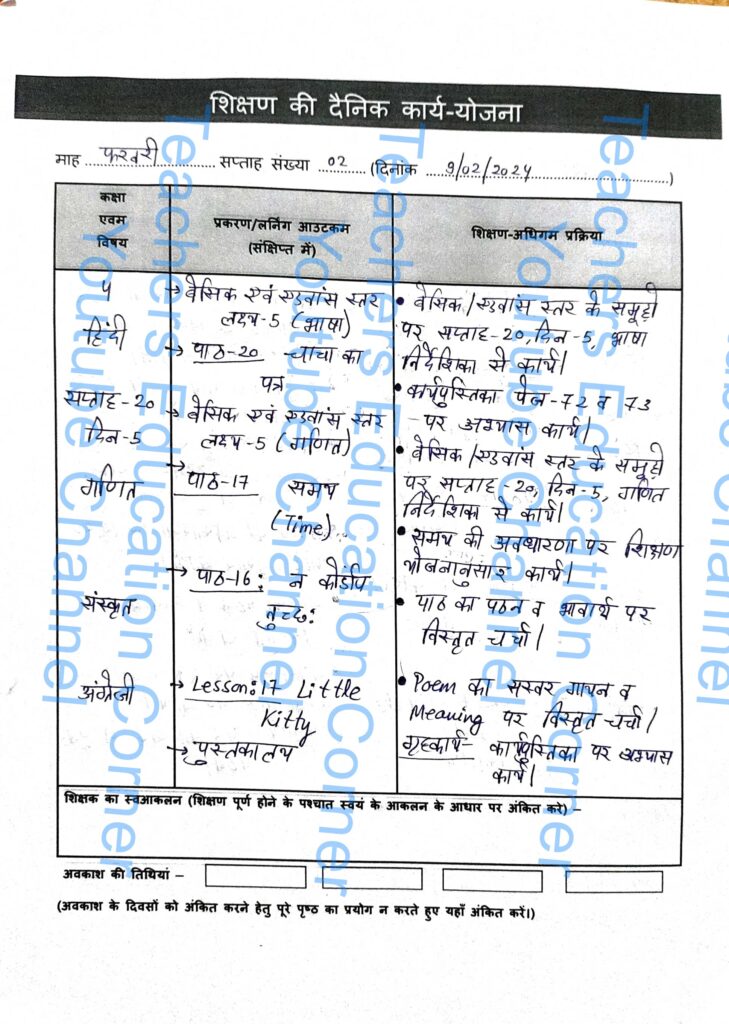 शिक्षण की दैनिक कार्य-योजना
माह फरवरी सप्ताह संख्या 02 (दिनाक 9/02/2024)
कक्षा
एवम
विषय
प्रकरण/लर्निंग आउटकम
(संक्षिप्त में)
शिक्षण-अधिगम प्रक्रिया
5
हिंदी
सप्ताह-20
दिन-5
गणित
संस्कृत
अंग्रेजी
→ बेसिक एवं एडवांस स्तर
लक्ष्य-5 (भाषा)
→ पाठ-20 चाचा का
पत्र
→ बेसिक एवं एडवांस स्तर
लक्ष्य-5 (गणित)
→ पाठ-17 समय
(Time)
→ पाठ-16: न कोऽपि
तुच्छ:
→ Lesson:17 Little
Kitty
→ पुस्तकालय
• बेसिक/एडवांस स्तर के समूहो
पर सप्ताह-20, दिन-5, भाषा
निर्देशिका से कार्य।
• कार्यपुस्तिका पेज-72 व 73
- पर अभ्यास कार्य।
• बेसिक/एडवांस स्तर के समूहो
पर सप्ताह-20, दिन-5, गणित
निर्देशिका से कार्य।
• समय की अवधारणा पर शिक्षण
योजनानुसार कार्य।
• पाठ का पठन व भावार्थ पर
विस्तृत चर्चा।
• Poem का सस्वर गायन व
Meaning पर विस्तृत चर्चा।
गृहकार्य- कार्यपुस्तिका पर अभ्यास
कार्य।
शिक्षक का स्वआकलन (शिक्षण पूर्ण होने के पश्चात स्वयं के आकलन के आधार पर अंकित करे) –
अवकाश की तिथियां –
(अवकाश के दिवसों को अंकित करने हेतु पूरे पृष्ठ का प्रयोग न करते हुए यहाँ अंकित करें।)
Teachers Education Corner
Youtube Channel
Teachers Education Corner
Youtube Channel
Teachers Education Corner
Youtube Channel